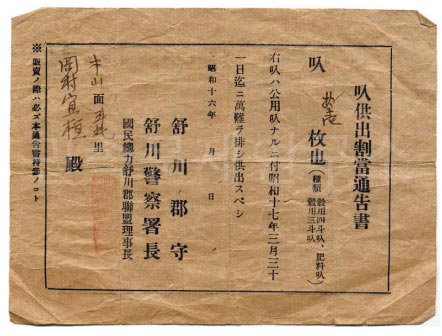 叺供出割當通告書
叺 枚也 種類 穀用四斗叺、肥料叺 穀用三斗叺
右叺ハ公用叺ナルニ付昭和十七年三月三十
一日迄ニ萬難ヲ排シ供出スベシ
昭和十六年 月 日
舒川郡守
舒川警察署長
國民總力舒川郡聯盟理事長
面 里
岡村宜桓 殿
※ 販賣ノ際ハ必ズ本通告書持參ノコト